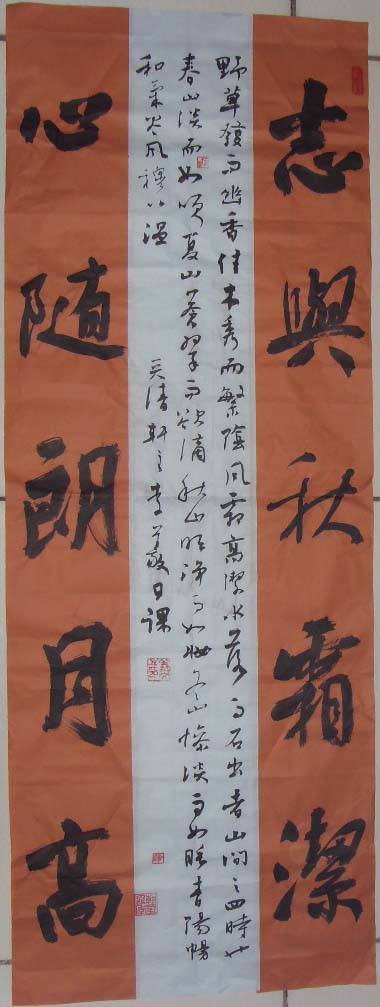 志與秋霜潔
野草發而幽香佳木秀而繁陰風霜高潔水落而石出者山間之四時也
春山淡而如笑夏山蒼翠而欲滴秋山明淨而如妝冬山慘淡而如睡青陽暢
和氣谷風穆以溫
清軒主李 日課
心隨朗月高